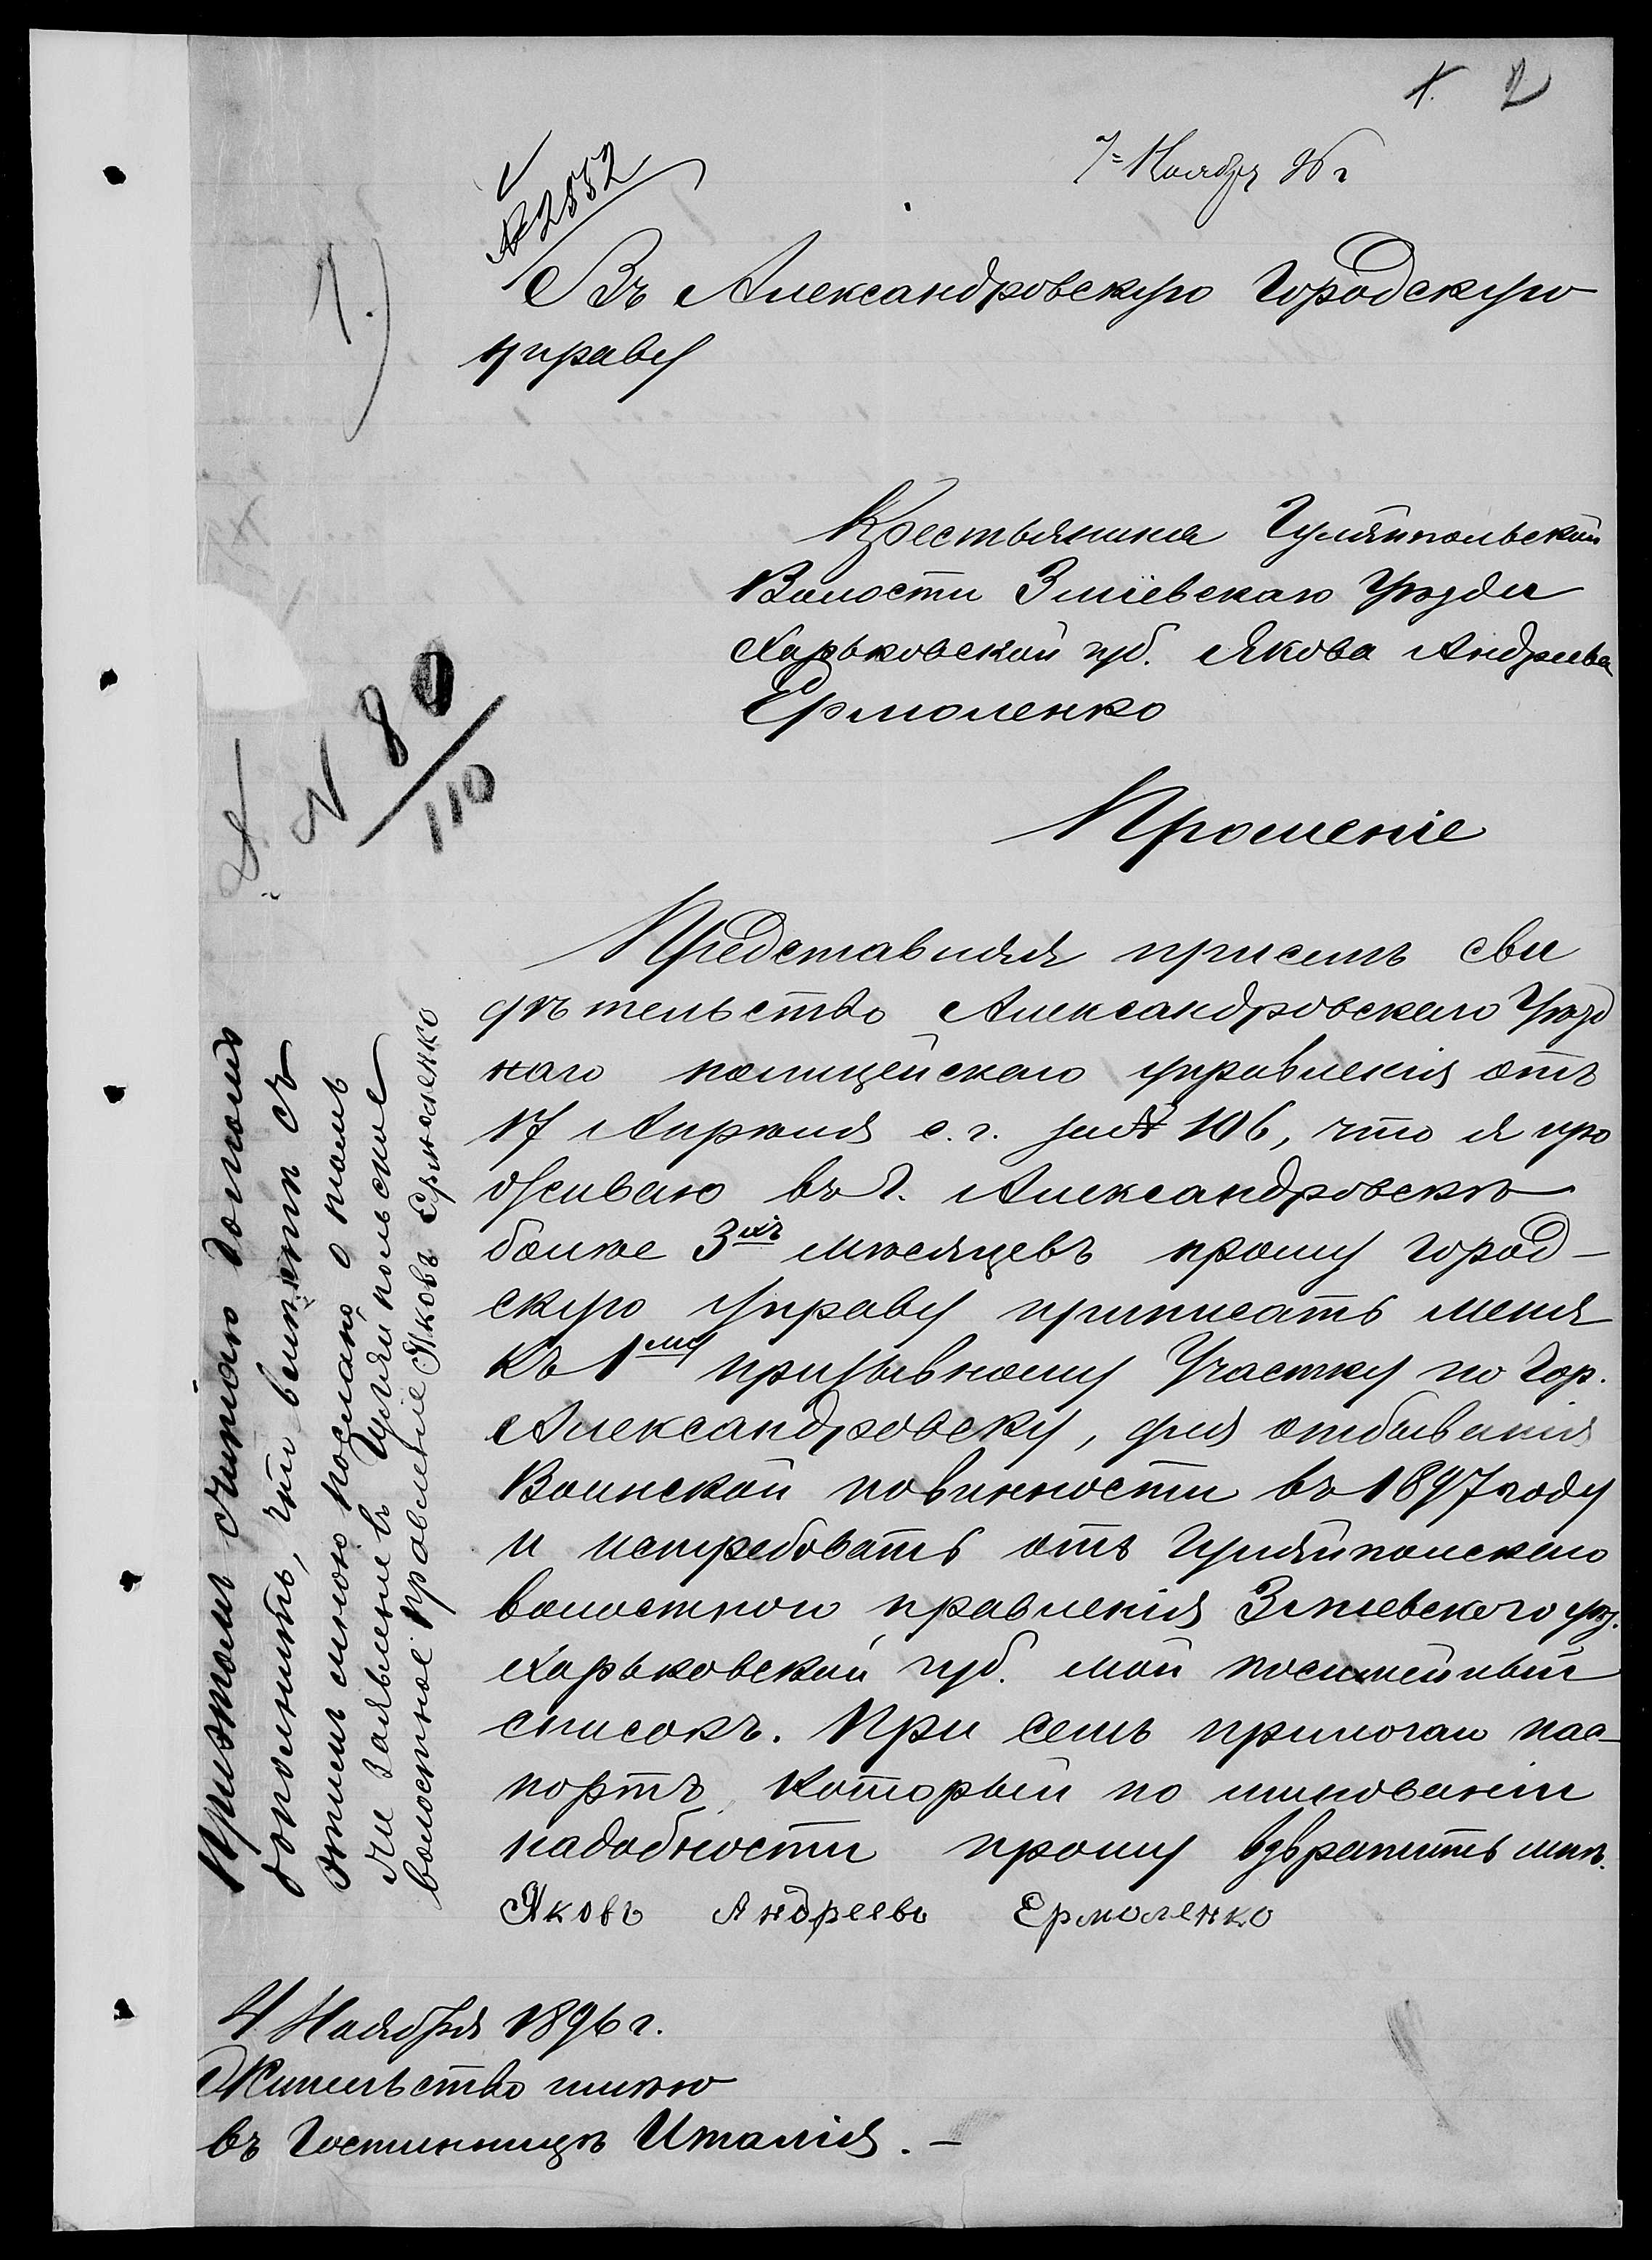 1. 2
7 Ноября 96 г
№ 2882
1.)
Въ Александровскую Городскую
управу
Крестьянина Гуляйпольской
Волости Зміевскаго Уѣзда
Харьковской губ. Якова Андреева
Ермоленко
N 80
110
Прошеніе
Представляя присемъ сви
дѣтельство Александровскаго Уѣзд
наго полицейскаго управленія отъ
17 Апрѣля с. г. за № 106, что я про
живаю въ г. Александровскѣ
болѣе 3хъ мѣсяцевъ прошу город-
скую Управу приписать меня
къ 1му призывному Участку по гор.
Александровску, для отбыванія
Воинской повинности въ 1897 году
и истребовать отъ Гуляйполскаго
волостного правленія Зміевского уѣз.
Харьковской губ. мой посимейный
списокъ. При семъ прилогаю пас-
портъ который по минованіи
надобности прошу взвратить мнѣ.
Яковъ Андреевъ Ермоленко
4 Ноября 1896 г.
Жительство имѣю
въ Гостинницѣ Италія. –
Приэтомъ считаю долгомъ
дополнить, что вмѣстѣ съ
этимъ мною послано о томъ
же заявленіе въ Гуляйпольское
волостное правленіе Яковъ Ермоленко